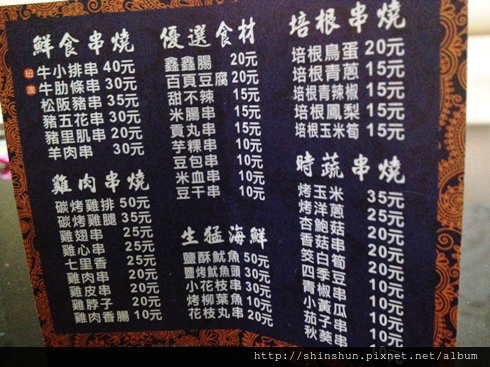 鮮食串燒
紐澳
牛小排串 40元
牛肋條串 30元
松阪豬串 35元
豬五花串 30元
豬里肌串 20元
羊肉串 30元
雞肉串燒
碳烤雞排 50元
碳烤雞腿 35元
雞翅串 25元
雞心串 25元
七里香 25元
雞肉串 20元
雞皮串 20元
雞脖子 20元
雞肉香腸 10元
優選食材
鑫鑫腸 20元
百頁豆腐 20元
甜不辣 15元
米腸串 15元
貢丸串 10元
芋粿串 10元
豆包串 10元
米血串 10元
豆干串 10元
生猛海鮮
鹽酥魷魚 50元
鹽烤魷魚頭 30元
小花枝串 30元
烤柳葉魚 10元
花枝丸串 20元
培根串燒
培根鳥蛋 20元
培根青蔥 15元
培根青辣椒 15元
培根鳳梨 15元
培根玉米筍 15元
時蔬串燒
烤玉米 35元
烤洋蔥 25元
杏鮑菇 25元
香菇串 20元
筊白筍 20元
四季豆 10元
青椒串 10元
小黃瓜 10元
茄子串 10元
秋葵串
http://shinshun.pixnet.net/album